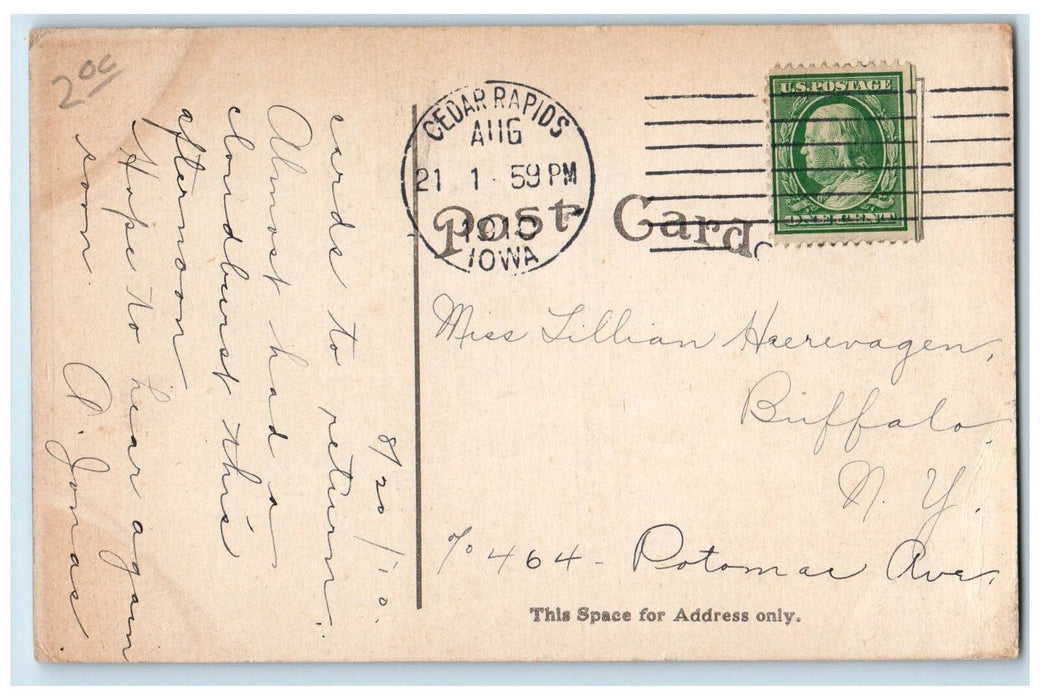 2 00
8/20/10.
cards to return.
Almost had a
cloudburst this
afternoon
Hope to hear again
soon
A. Jonas
CEDAR RAPIDS
AUG
21 1 - 59 PM
1910
IOWA
U.S. POSTAGE
ONE CENT
Post Card.
Miss Lillian
Buffalo
N. Y.
℅ 464 - Potomac Ave.
This Space for Address only.